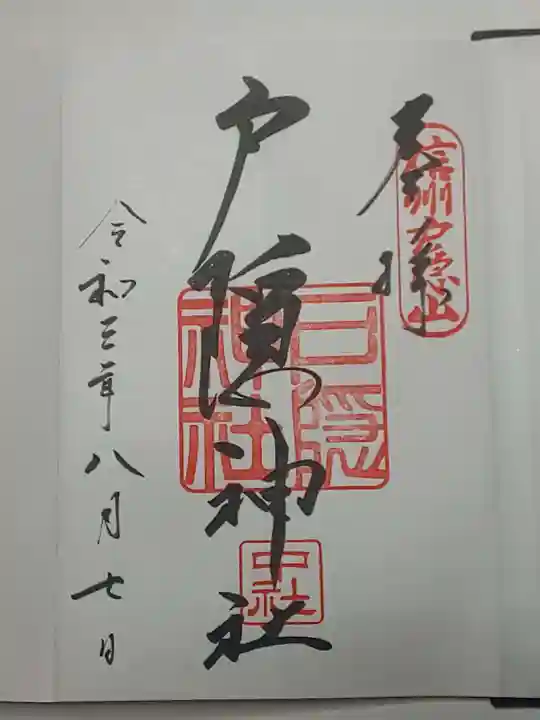 奉拝
信州戸隠山
戸隠神社
戸隠
神社
中社
令和三年八月七日